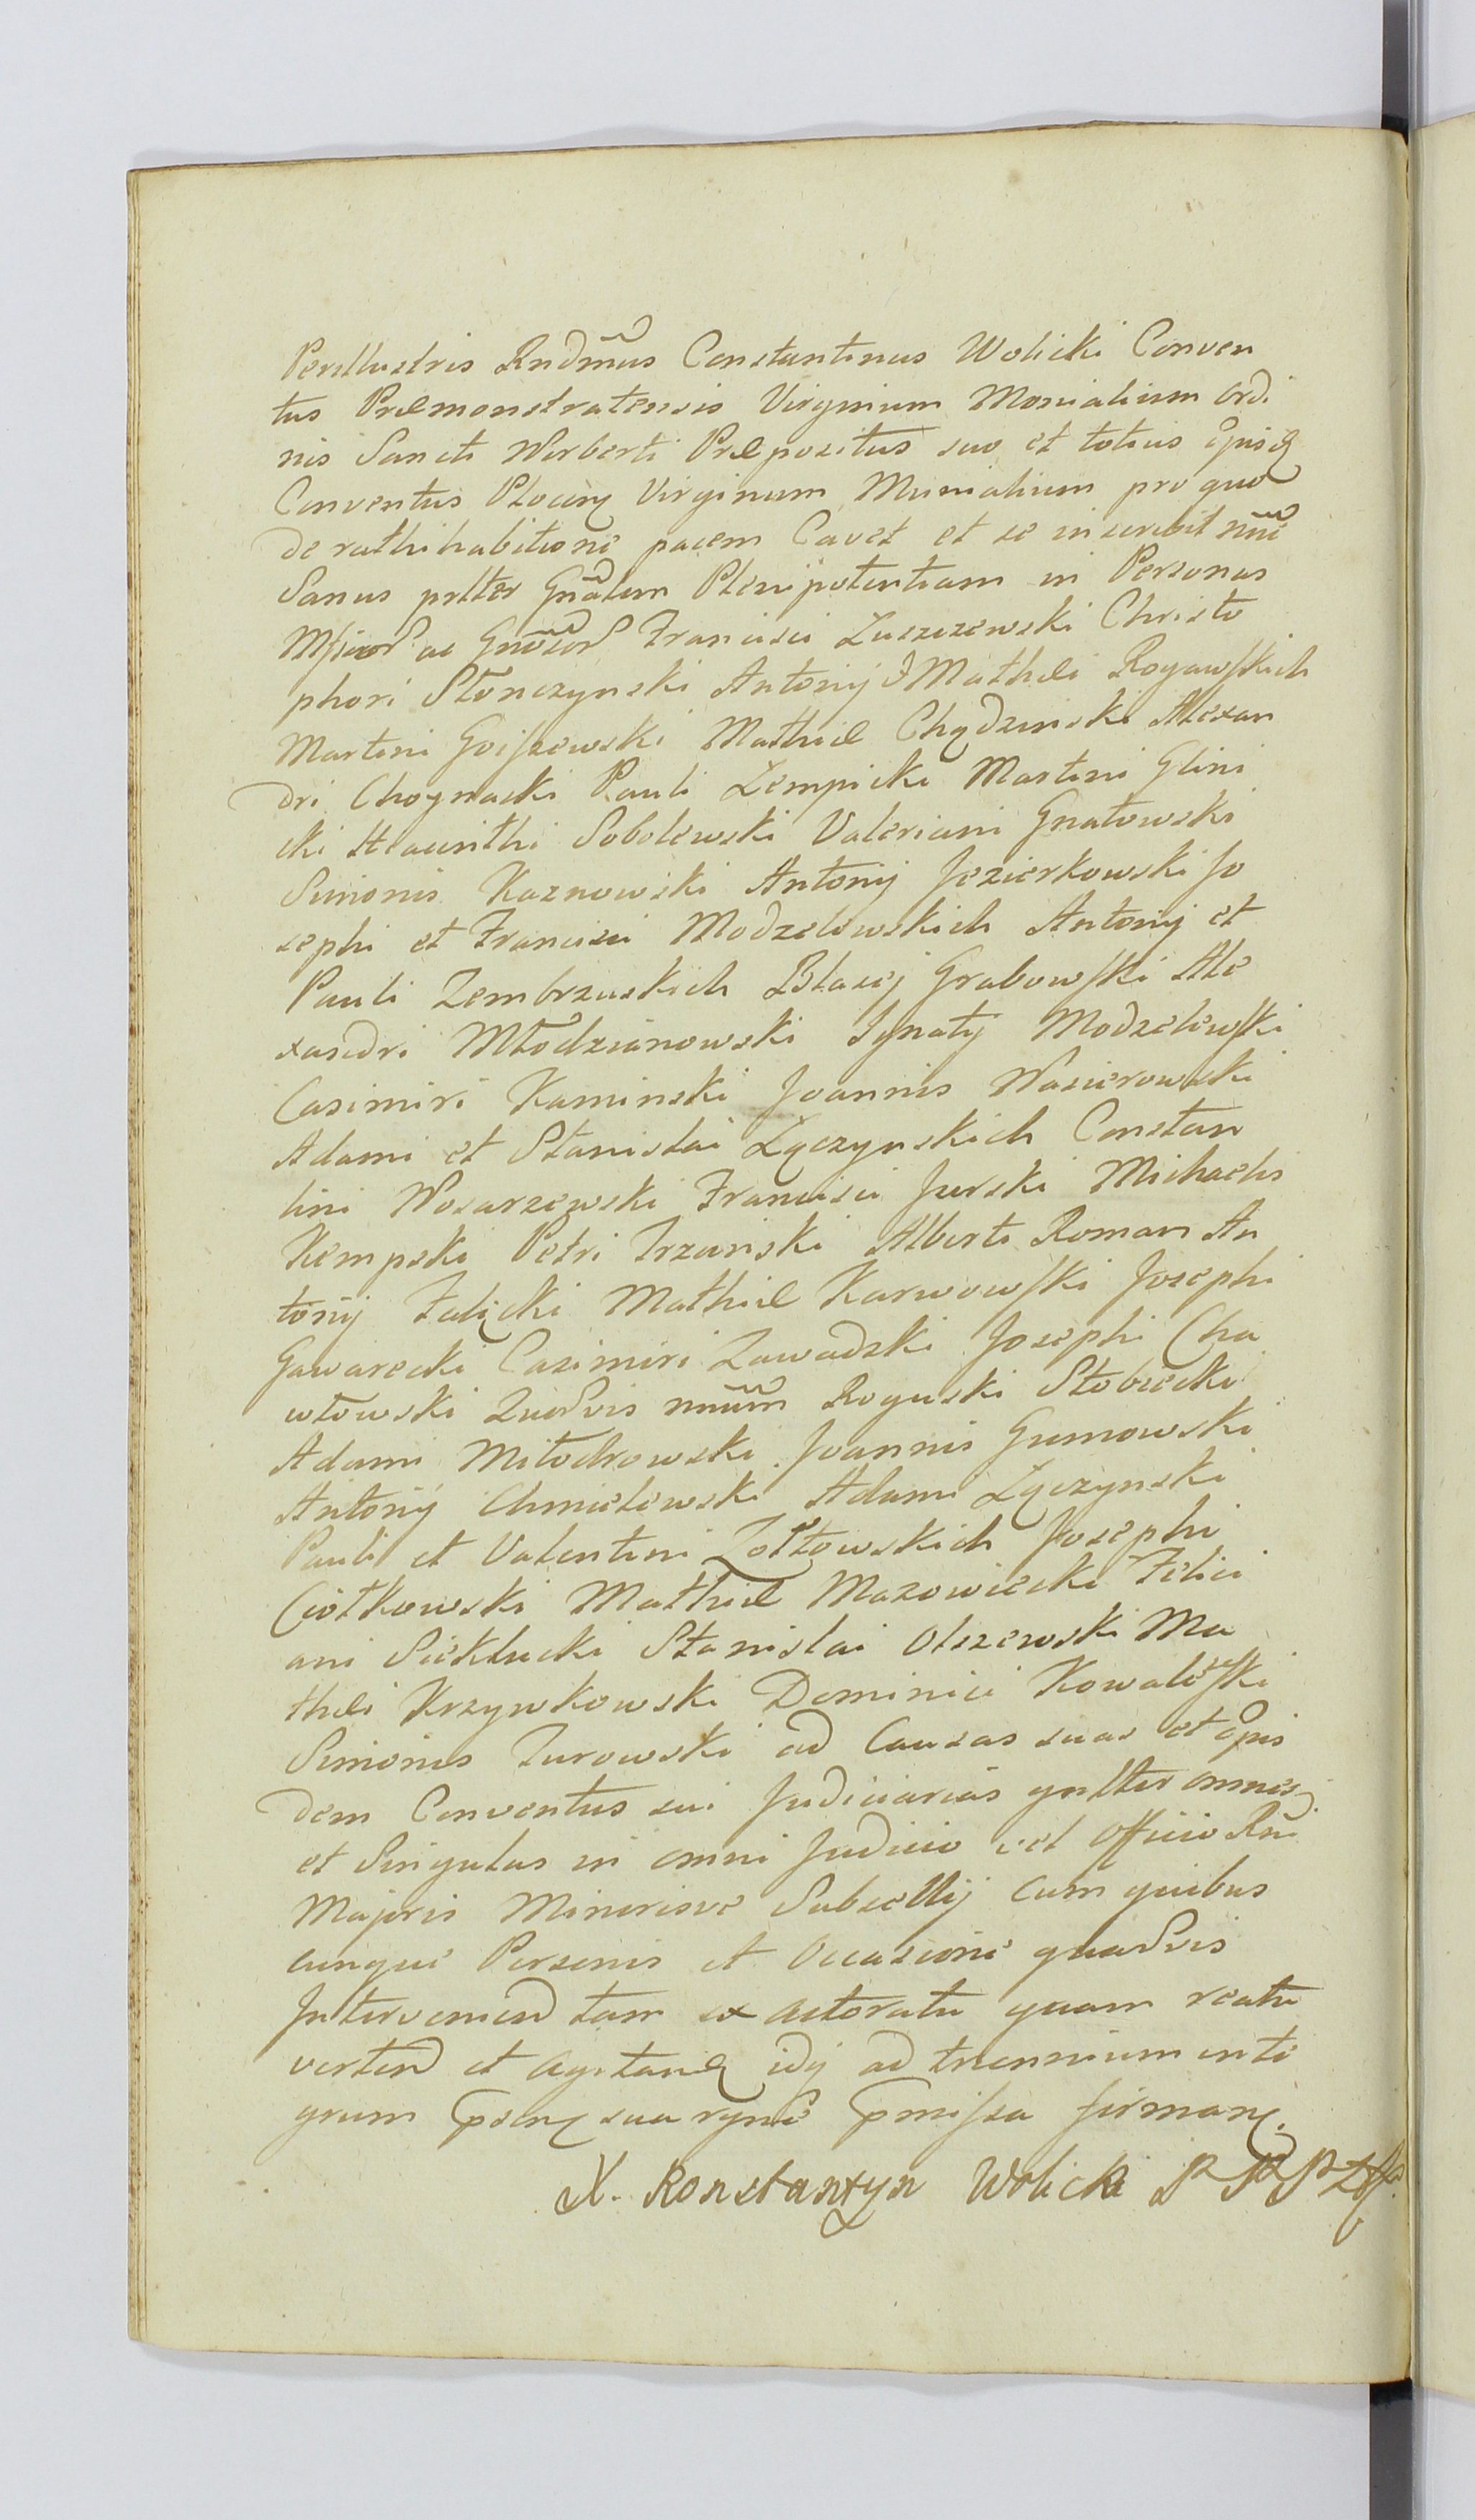 Perillustris Rndmus Constantinus Wolicki Conven
tus Præmonstratensis Virginium Monialium Ordi
nis Sancti Norberti Præpositus suo et totius Ejusd
Conventus Plocen Virginum Monialium pro quo
de rathihabitione pacem Cavet et se inscribit nnē
Sanus prtter Gnālem Plenipotentiam in Personas
Mfficor ac Gnosor Francisci Luszczewski Christo
phori Słonczynski Antonij & Mathæi Rogawskich
Martini Goiszewski Mathiæ Chądzinski Alexan
dri Choynacki Pauli Zempicki Martini Glini
cki Hÿacinthi Sobolewski Valeriani Gnatowski
Simonis Kaznowski Antonij Jezierkowski Jo
sephi et Francisci Modzelewskich Antonij et
Pauli Zembrzuskich Blasij Grabowski Ale
xandri Młodzianowski Ignatij Modzelewski
Casimiri Kaminski Joannis Wasierowski
Adami et Stanislai Łączynskich Constan
tini Wosarzewski Francisci Jurski Michaelis
Kempski Petri Trzcinski Alberti Roman An
tonij Falęcki Mathiæ Karwowski Josephi
Gawarecki Casimiri Zawadzki Josephi Cha
włowski Quorvis nnūm Roguski Słobiecki
Adami Miłodrowski Joannis Gumowski
Antonij Chmielewski Adami Łączynski
Pauli et Valentini Zołtowskich Josephi
Ciołkowski Mathiæ Mazowiecki Felici
ani Siekłucki Stanislai Olszewski Ma
thæi Krzynkowski Dominici Kowalewski
Simonis Zurowski ad Causas suas et Ejus
dem Conventus sui Judiciarias gnltter omnes
et Singulas in omni Judicio vel Officio Rni
Majoris Minorisve Subsellij cum quibus
cunque Personis et Occasione quavis
Intervenien tam ex actoratu quam reatu
verten et agitand idq ad triennium inte
grum psenq sua rgnē pmissa firmanq.
X. Konstantyn Wolicki PPPZ